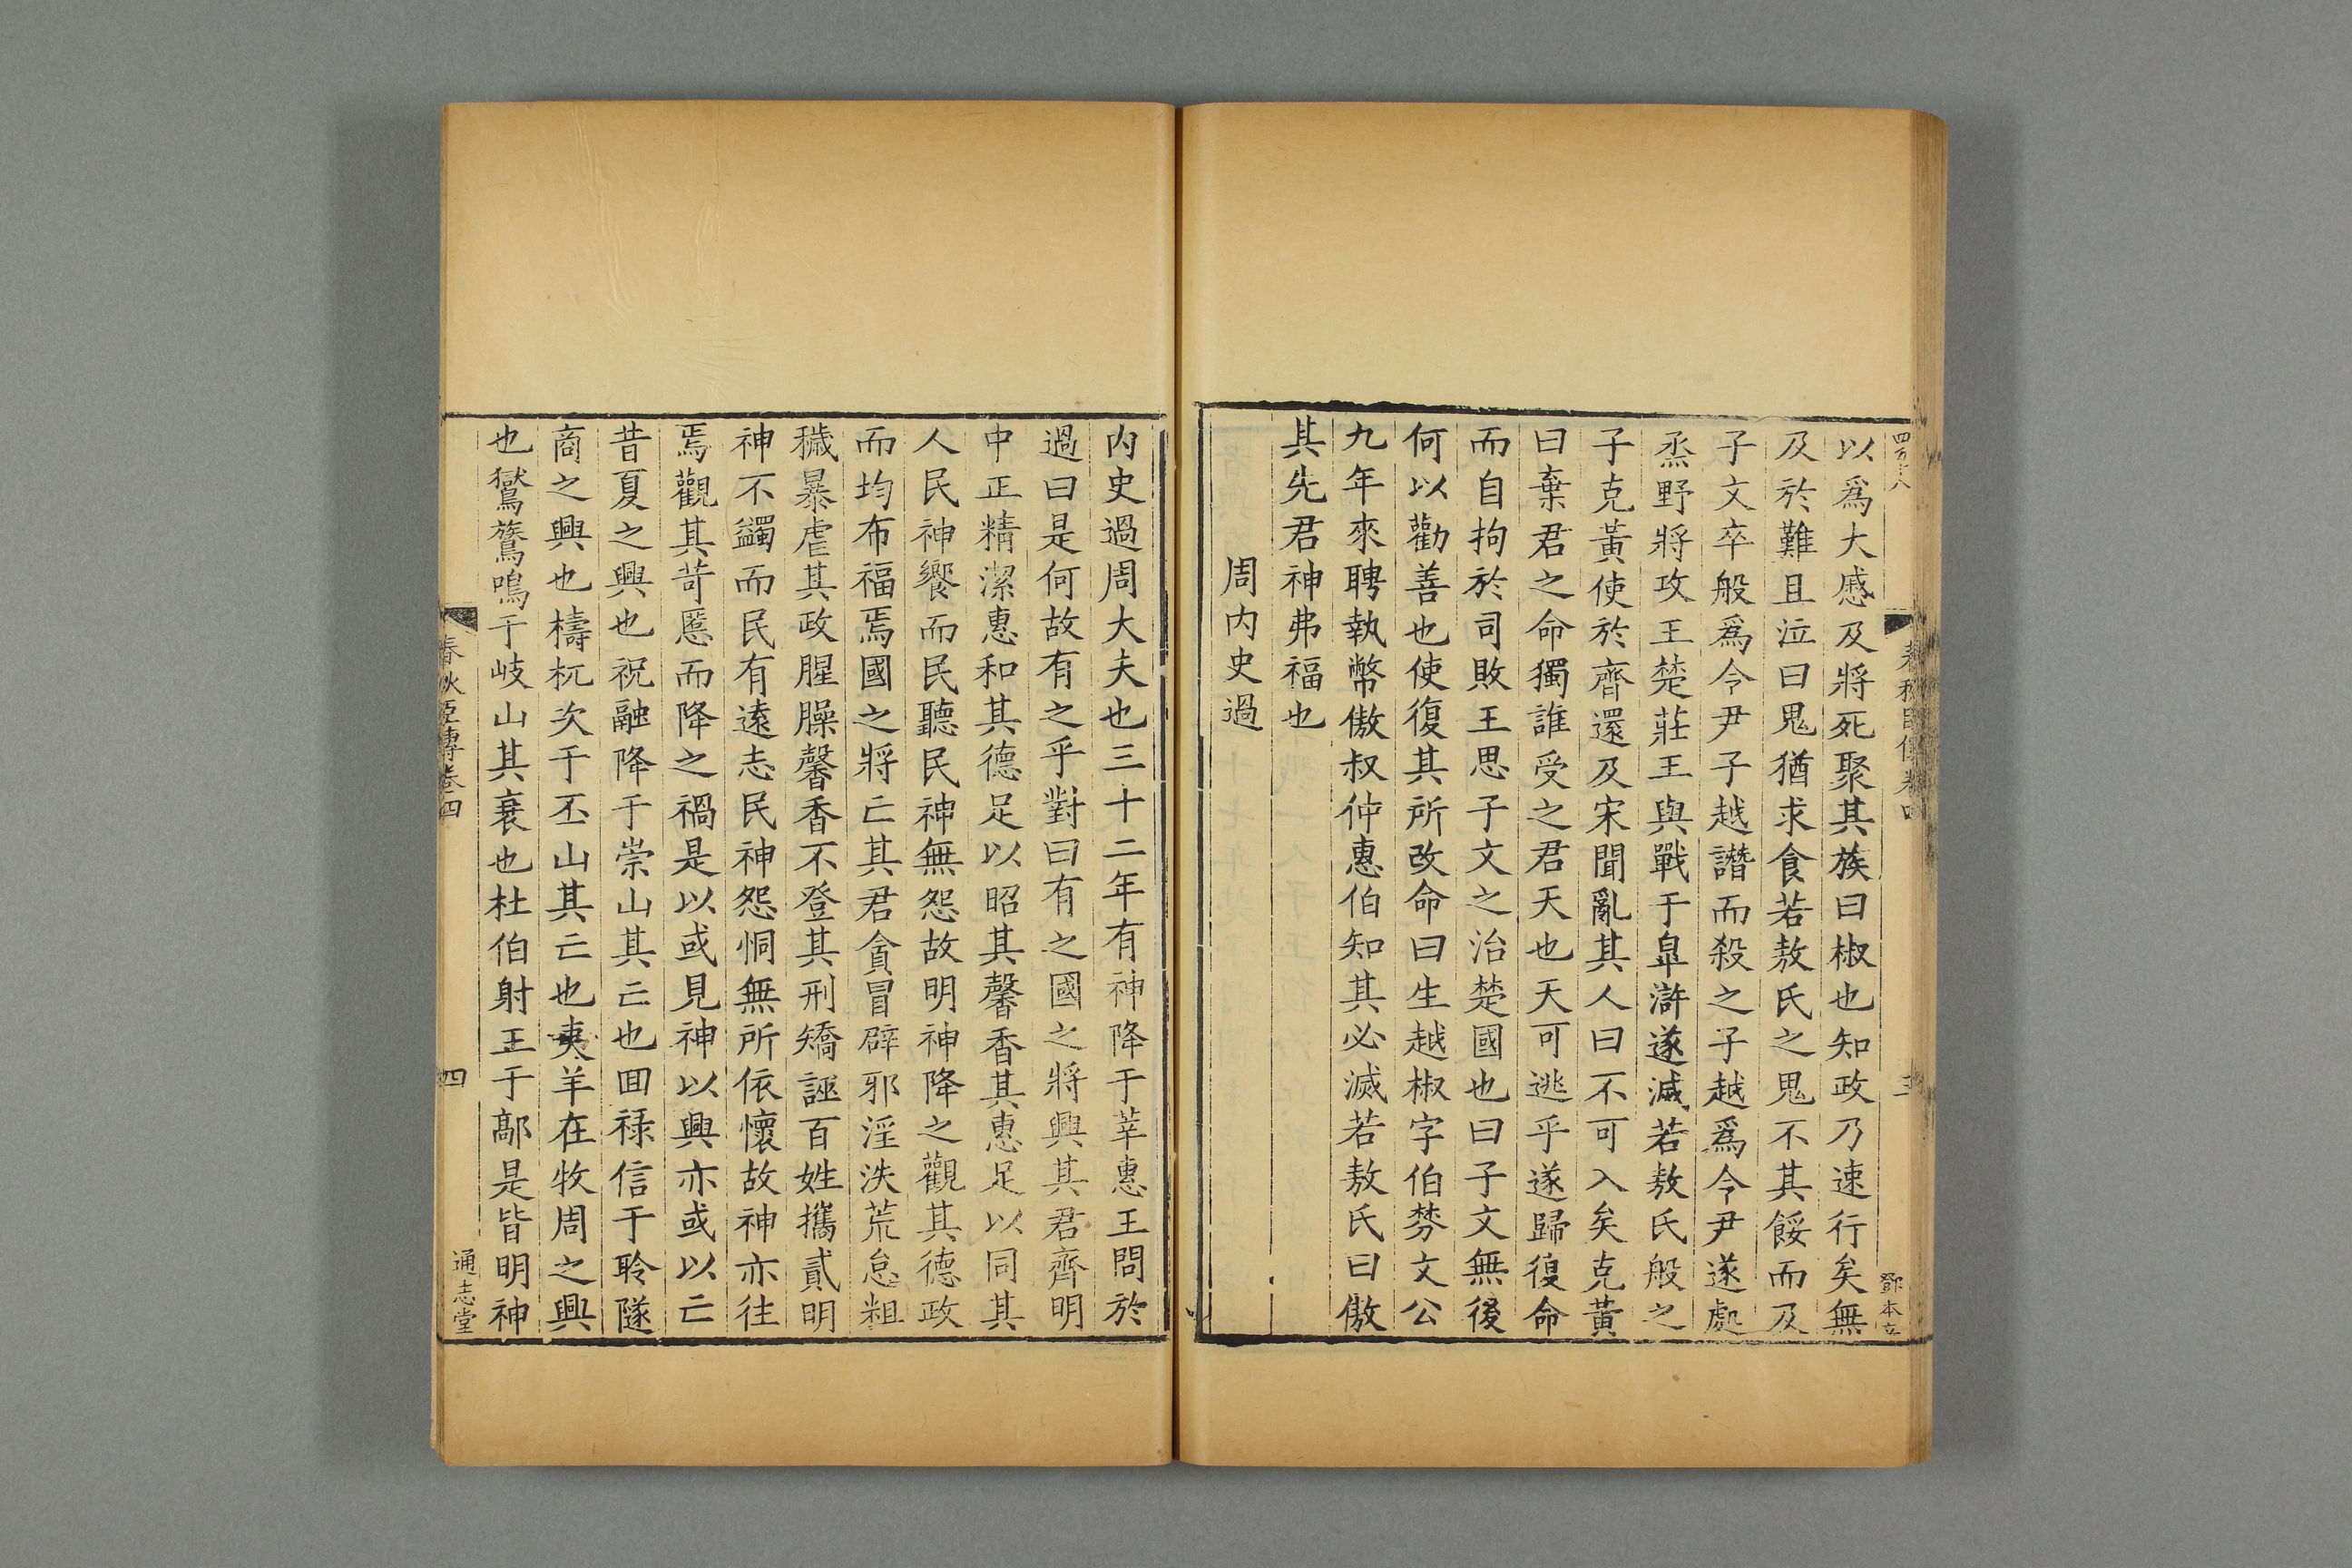 四百六八
春秋臣傳卷四
三
鄧本立
以爲大慼及將死聚其族曰椒也知政乃速行矣無
及於難且泣曰鬼猶求食若敖氏之鬼不其餒而及
子文卒般爲令尹子越譖而殺之子越爲令尹遂處
烝野將攻王楚莊王與戰于皐滸遂滅若敖氏般之
子克黃使於齊還及宋聞亂其人曰不可入矣克黃
曰棄君之命獨誰受之君天也天可逃乎遂歸復命
而自拘於司敗王思子文之治楚國也曰子文無後
何以勸善也使復其所改命曰生越椒字伯棼文公
九年來聘執幣傲叔仲惠伯知其必滅若敖氏曰傲
其先君神弗福也
周内史過
内史過周大夫也三十二年有神降于莘惠王問於
過曰是何故有之乎對曰有之國之將興其君齊明
中正精潔惠和其德足以昭其馨香其惠足以同其
人民神饗而民聽民神無怨故明神降之觀其德政
而均布福焉國之將亡其君貪冒辟邪淫泆荒怠粗
穢暴虐其政腥臊馨香不登其刑矯誣百姓攜貳明
神不蠲而民有遠志民神怨恫無所依懷故神亦往
焉觀其苛慝而降之禍是以或見神以興亦或以亡
昔夏之興也祝融降于崇山其亡也回祿信于聆隧
商之興也檮杌次于丕山其亡也夷羊在牧周之興
也鸑鷟鳴于岐山其衰也杜伯射王于鄗是皆明神
春秋臣傳卷四
四
通志堂